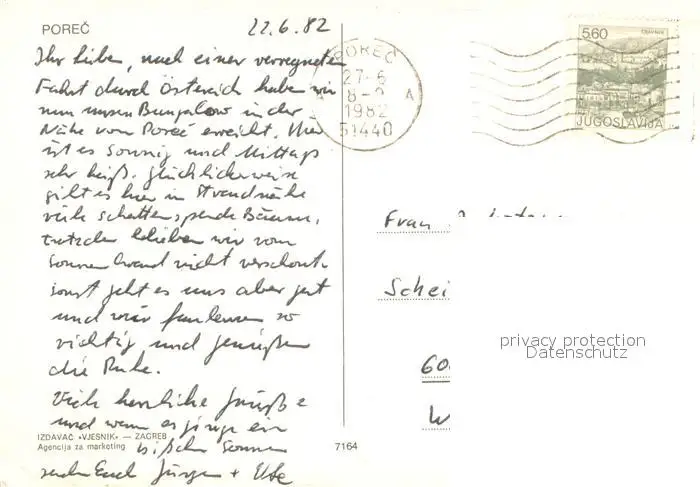 POREČ
22.6.82
Ihr Lieben, nach einer verregneten
Fahrt durch Östereich haben wir
nun unsern Bungalow in der
Nähe von Poreč erreicht. Hier
ist es sonnig und Mittags
sehr heiß. Glücklicherweise
gibt es hier in Strandnähe
viele schattenspende Bäume,
trotzdem blieben wir vom
Sonnenbrand nicht verschont.
sonst geht es uns aber gut
und wir faulenzen so
richtig und genießen
die Ruhe.
Viele herzliche Grüße
und wenn es ginge ein
bißchen Sonne
senden Euch Jürgen +
IZDAVAČ «VJESNIK» — ZAGREB
Agencija za marketing
7164
POREČ
27-6
1982
A
51440
5.60
TRAVNIK
JUGOSLAVIJA
Frau
Schei
60
W
privacy protection
Datenschutz